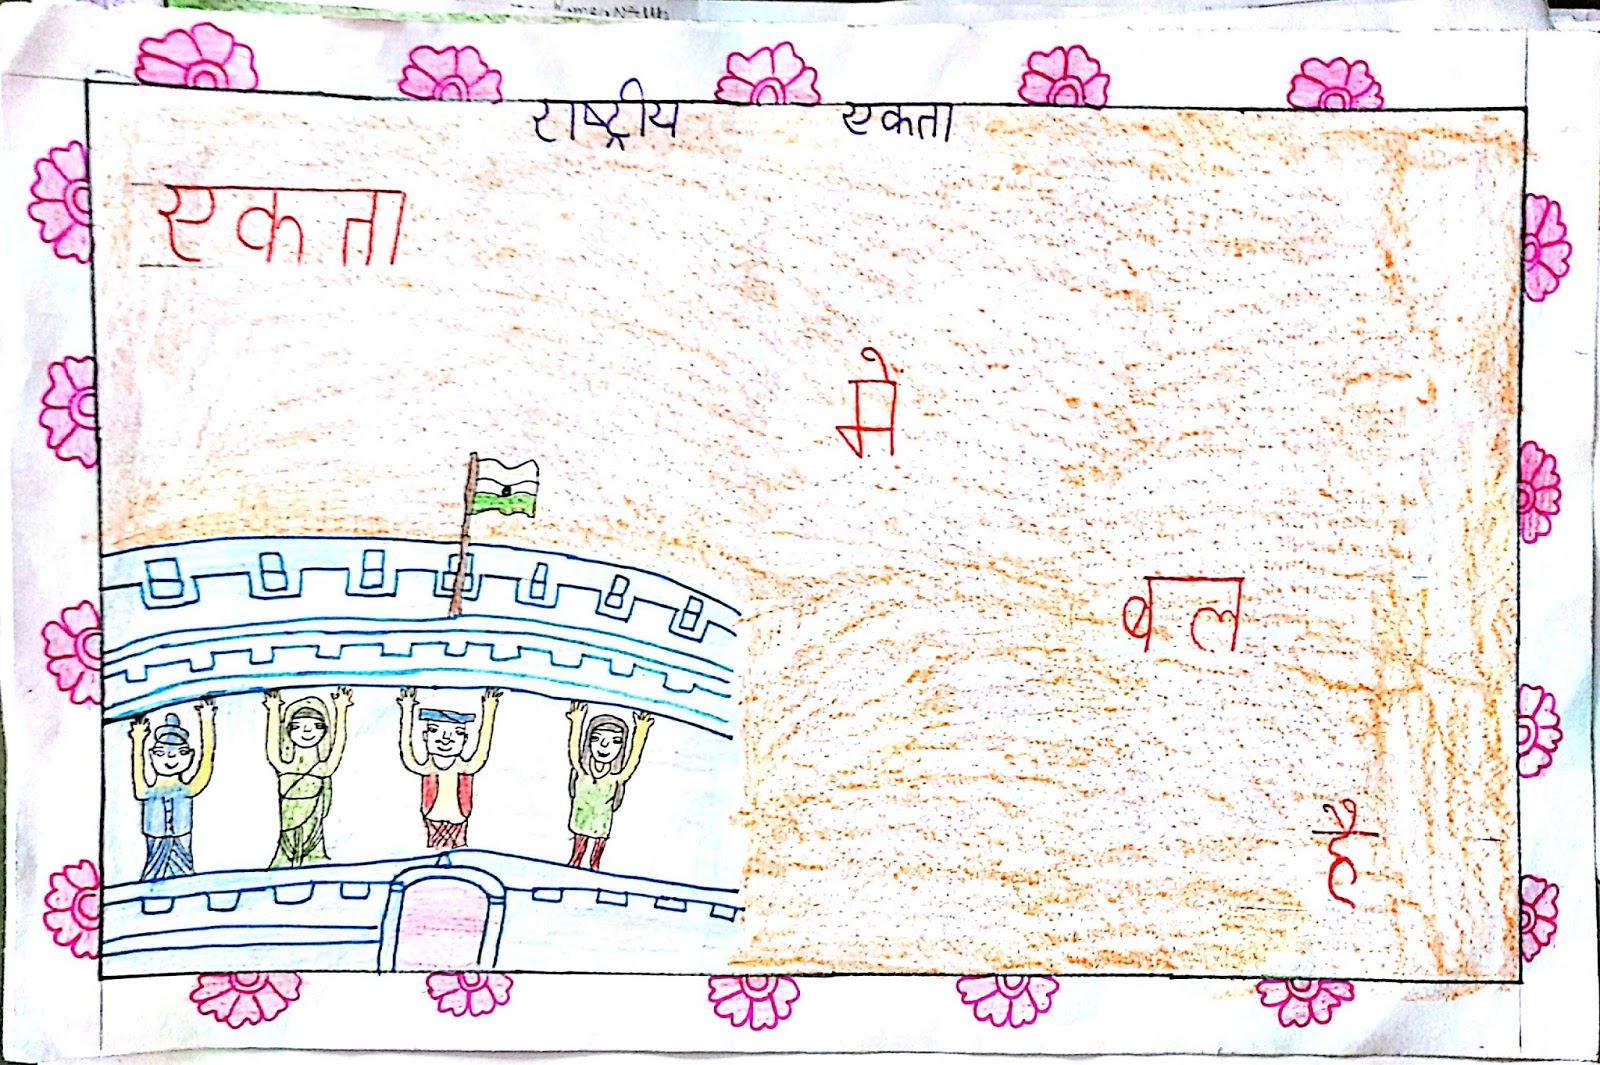 राष्ट्रीय एकता
एकता
मे
बल
है